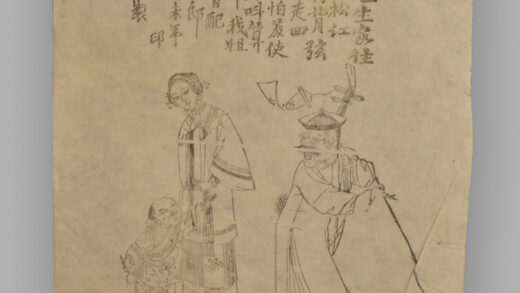 生家住
松江
月弦
走四
怕羞使
叫算
我姐
配
郎
未年
印
製